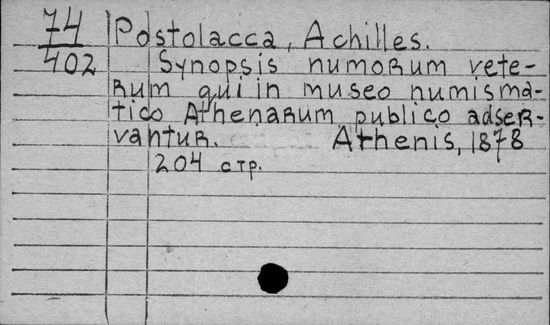 74 Postolacca, Achilles.
402 Synopsis numorum vete-
rum qui in museo numisma-
tico Athenarum publico adser-
vantur. Athenis, 1878
204 стр.